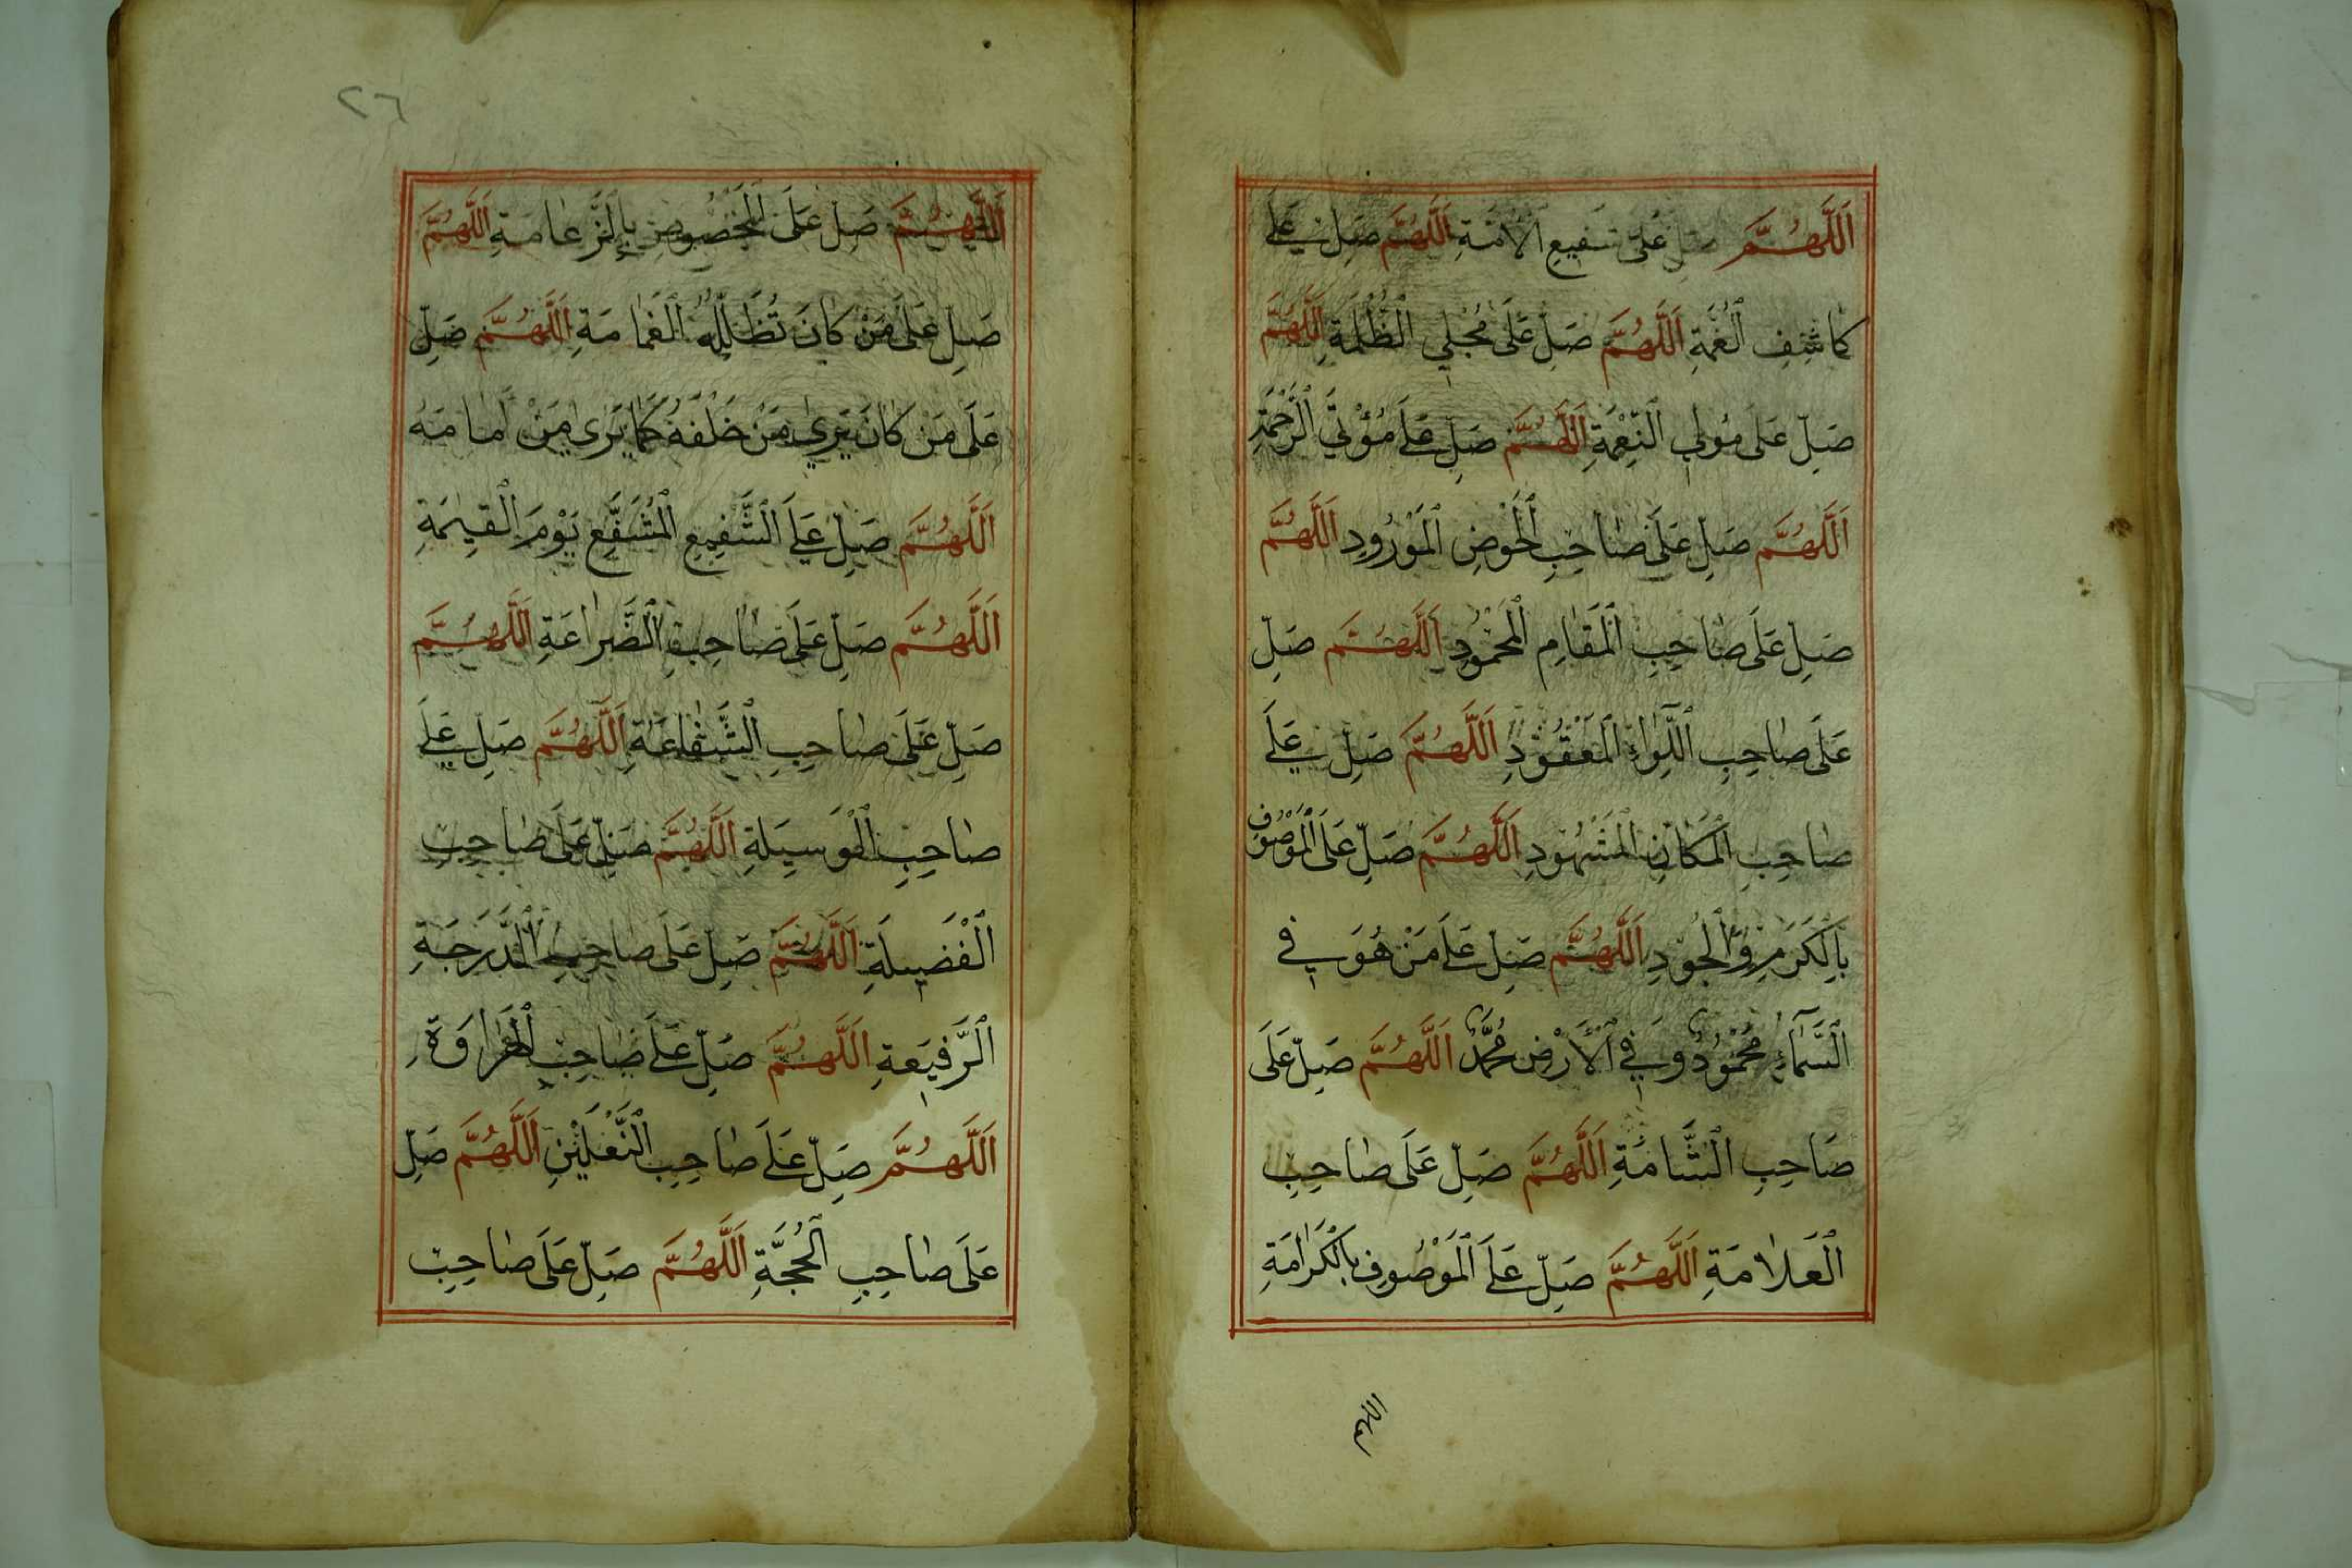 اَللَّهُمَّ صَلِّ عَلَى شَفِيعِ الْأُمَّةِ اَللَّهُمَّ صَلِّ عَلَى
كَاشِفِ الْغُمَّةِ اَللَّهُمَّ صَلِّ عَلَى مُجْلِي الظُّلْمَةِ اَللَّهُمَّ
صَلِّ عَلَى مُولِي النِّعْمَةِ اَللَّهُمَّ صَلِّ عَلَى مُؤْتِي الرَّحْمَةِ
اَللَّهُمَّ صَلِّ عَلَى صَاحِبِ الْحَوْضِ الْمَوْرُودِ اَللَّهُمَّ
صَلِّ عَلَى صَاحِبِ الْمَقَامِ الْمَحْمُودِ اَللَّهُمَّ صَلِّ
عَلَى صَاحِبِ اللِّوَاءِ الْمَعْقُودِ اَللَّهُمَّ صَلِّ عَلَى
صَاحِبِ الْمَكَانِ الْمَشْهُودِ اَللَّهُمَّ صَلِّ عَلَى الْمَوْصُوفِ
بِالْكَرَمِ وَالْجُودِ اَللَّهُمَّ صَلِّ عَلَى مَنْ هُوَ فِي
السَّمَآءِ مَحْمُودٌ وَفِي الْأَرْضِ مُحَمَّدٌ اَللَّهُمَّ صَلِّ عَلَى
صَاحِبِ الشَّامَةِ اَللَّهُمَّ صَلِّ عَلَى صَاحِبِ
الْعَلَامَةِ اَللَّهُمَّ صَلِّ عَلَى الْمَوْصُوفِ بِالْكَرَامَةِ
اللهم
٢٦
اَللَّهُمَّ صَلِّ عَلَى الْمَخْصُوصِ بِالزَّعَامَةِ اَللَّهُمَّ
صَلِّ عَلَى مَنْ كَانَ تُظَلِّلُهُ الْغَمَامَةِ اَللَّهُمَّ صَلِّ
عَلَى مَنْ كَانَ يَرَى مَنْ خَلْفَهُ كَمَا يَرَى مَنْ أَمَامَهُ
اَللَّهُمَّ صَلِّ عَلَى الشَّفِيعِ الْمُشَفَّعِ يَوْمَ الْقِيٰمَةِ
اَللَّهُمَّ صَلِّ عَلَى صَاحِبِ الضَّرَاعَةِ اَللَّهُمَّ
صَلِّ عَلَى صَاحِبِ الشَّفَاعَةِ اَللَّهُمَّ صَلِّ عَلَى
صَاحِبِ الْوَسِيلَةِ اَللَّهُمَّ صَلِّ عَلَى صَاحِبِ
الْفَضِيلَةِ اَللَّهُمَّ صَلِّ عَلَى صَاحِبِ الدَّرَجَةِ
الرَّفِيعَةِ اَللَّهُمَّ صَلِّ عَلَى صَاحِبِ الْهَرَاوَةِ
اَللَّهُمَّ صَلِّ عَلَى صَاحِبِ النَّعْلَيْنِ اَللَّهُمَّ صَلِّ
عَلَى صَاحِبِ الْحُجَّةِ اَللَّهُمَّ صَلِّ عَلَى صَاحِبِ